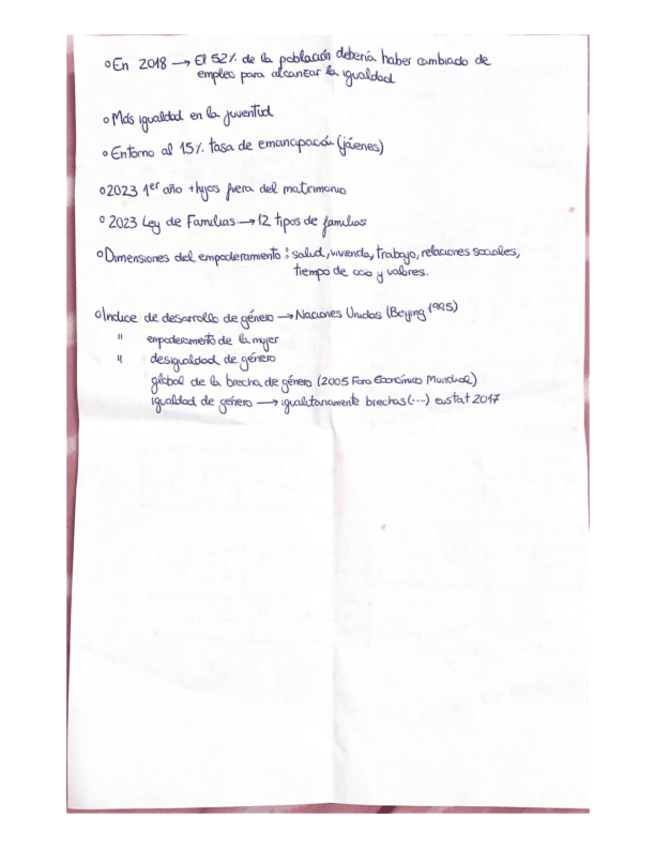 o En 2018 → El 52% de la población debería haber cambiado de
empleo para alcanzar la igualdad
o Más igualdad en la juventud
o Entorno al 15% tasa de emancipación (jóvenes)
o 2023 1er año + hijos fuera del matrimonio
o 2023 Ley de Familias → 12 tipos de familias
o Dimensiones del empoderamiento: salud, vivienda, trabajo, relaciones sociales,
tiempo de ocio y valores.
o Indice de desarrollo de género → Naciones Unidas (Beijing 1995)
" empoderamiento de la mujer
" desigualdad de género
global de la brecha de género (2005 Foro Económico Mundial)
igualdad de género → igualitariamente brechas (...) eustat 2017